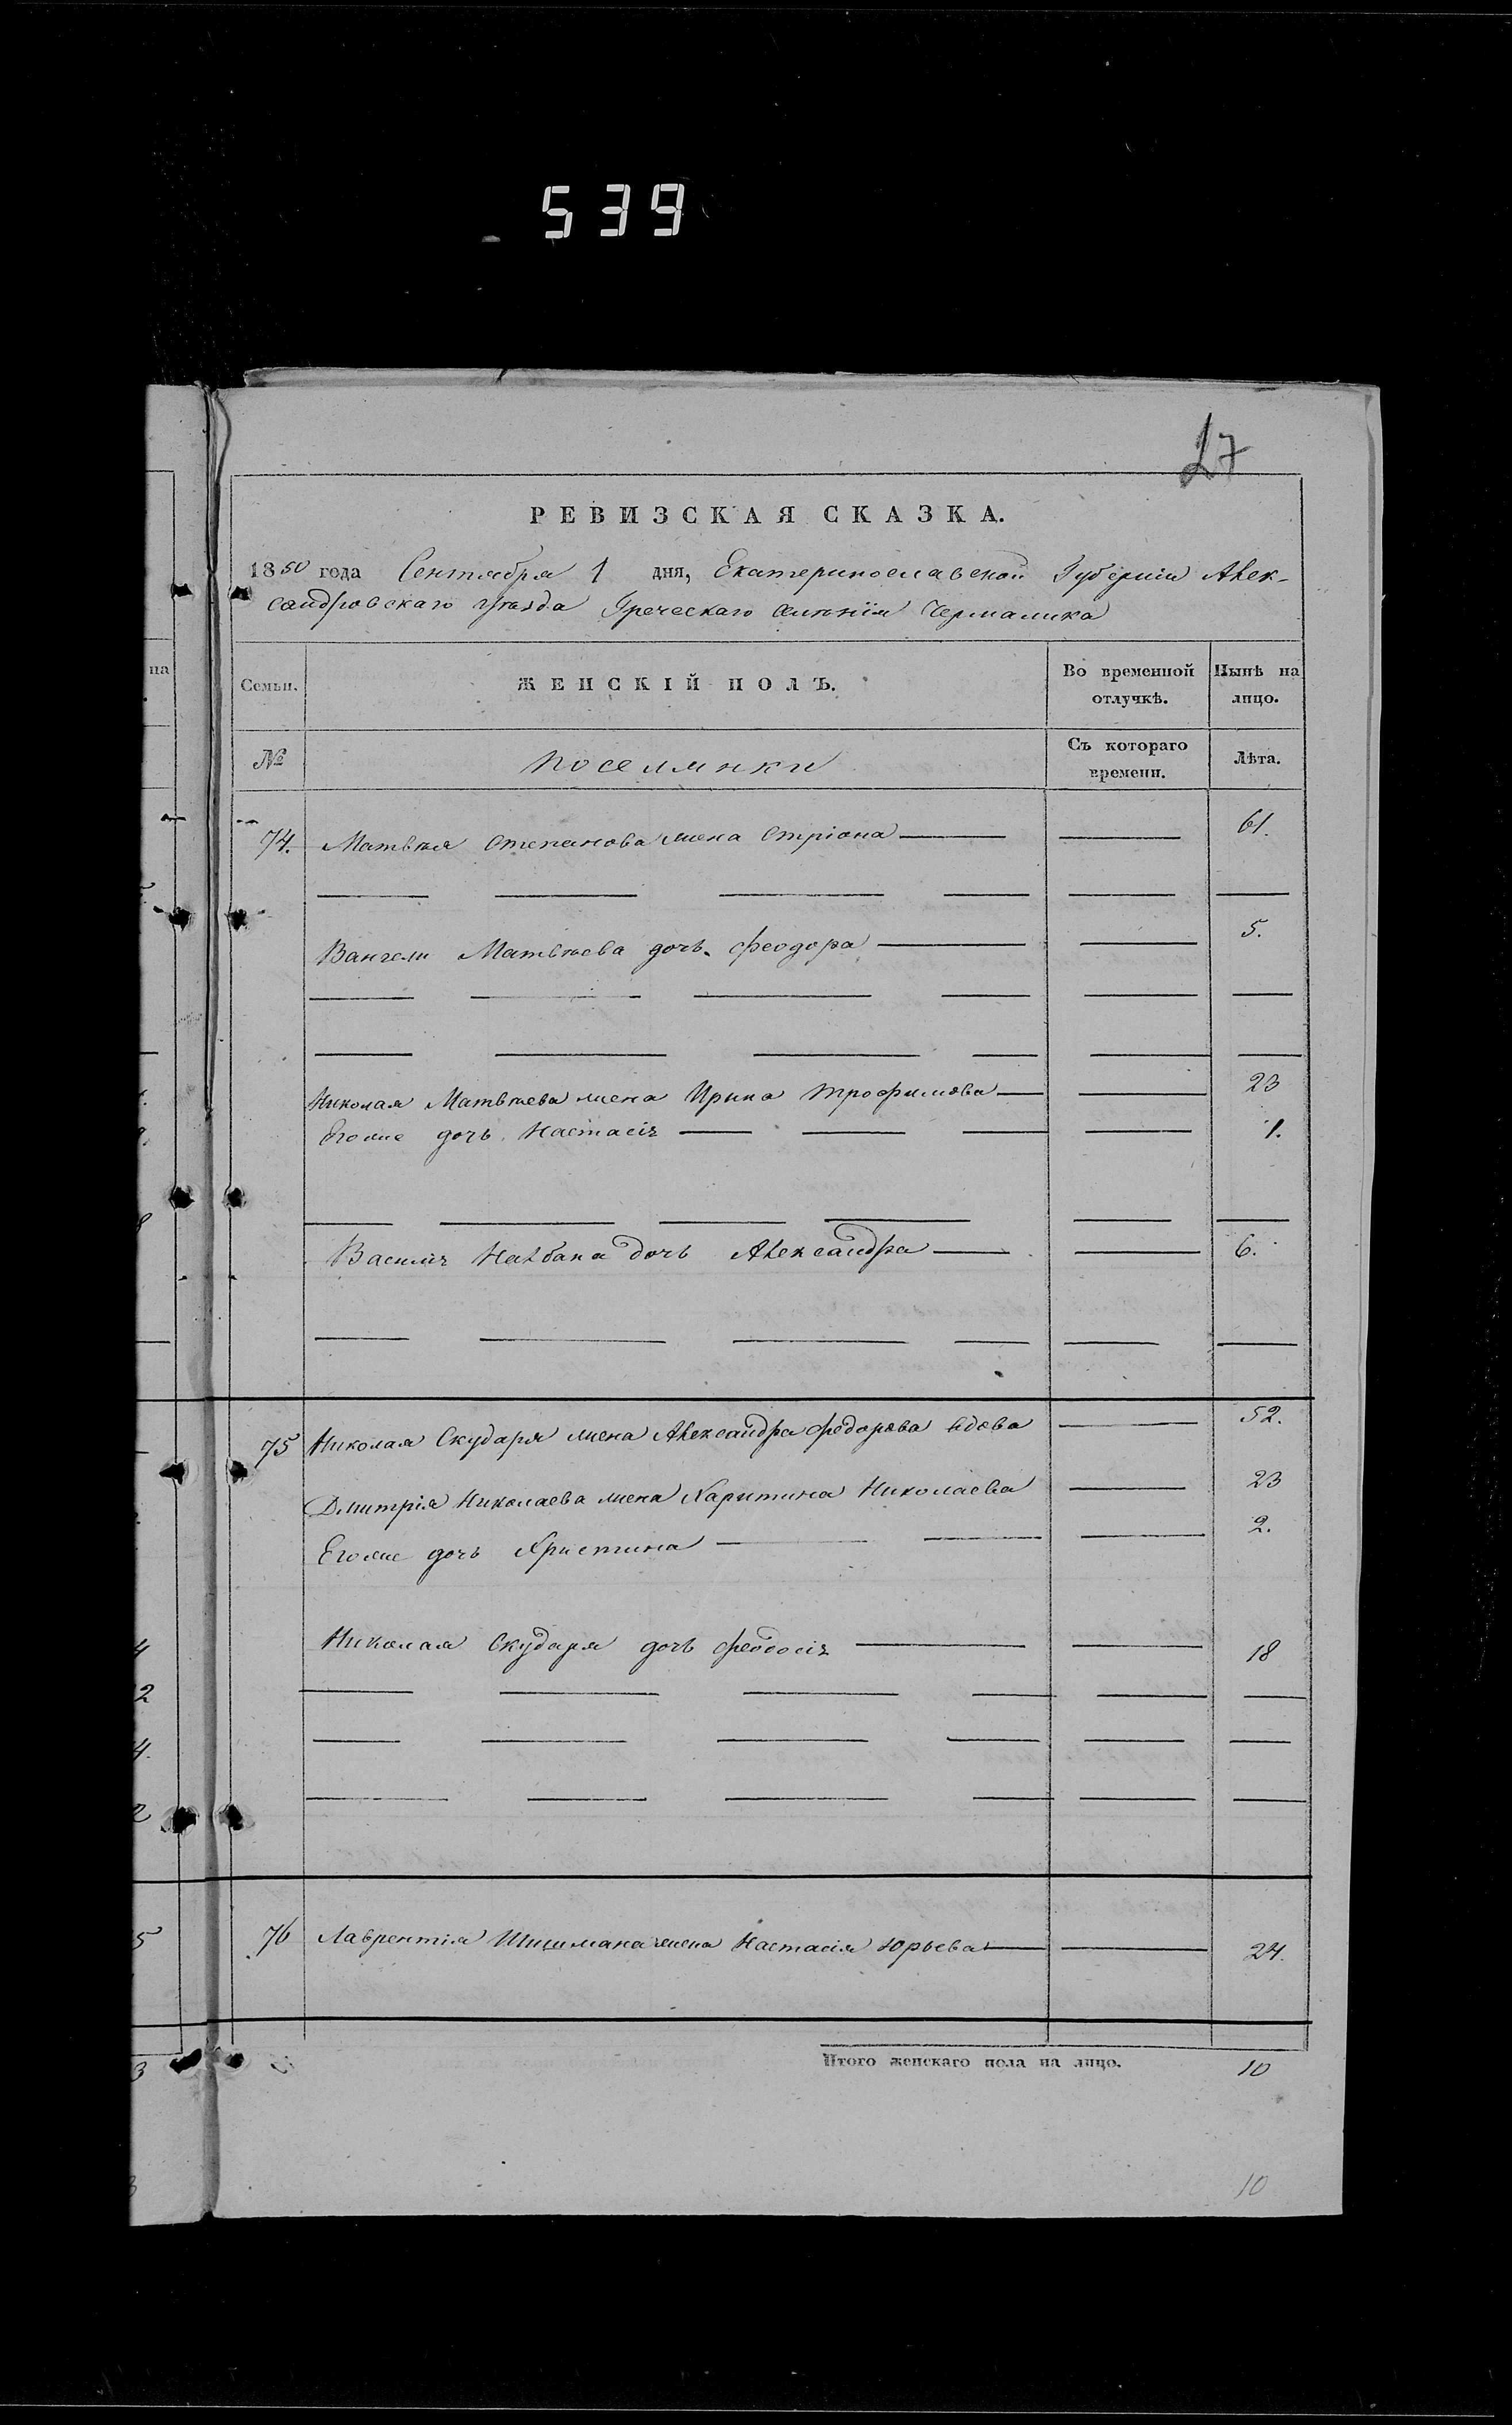 539
27
РЕВИЗСКАЯ СКАЗКА.
1850 года Сентября 1 дня, Екатеринославской Губернiи Алек-
сандровскаго уѣзда Греческаго селенiя Чермалика
Семьи.
ЖЕНСКIЙ ПОЛЪ.
Во временной отлучкѣ.
Нынѣ на лицо.
№
поселянки
Съ котораго времени.
Лѣта.
74. Матвѣя Степанова жена Стрiона 61.
Вангели Матвѣева дочь Феодора 5.
Николая Матвѣева жена Ирина Трофимова 23
Егоже дочь Настасiя 1.
Василiя Налбана дочь Александра 6.
75 Николая Скударя жена Александра Федорова вдова 52.
Дмитрiя Николаева жена Харитина Николаева 23
Егоже дочь Христина 2.
Николая Скударя дочь Феодосiя 18
76 Лаврентiя Шишмана жена Настасiя Юрьева 24.
Итого женскаго пола на лицо. 10
10